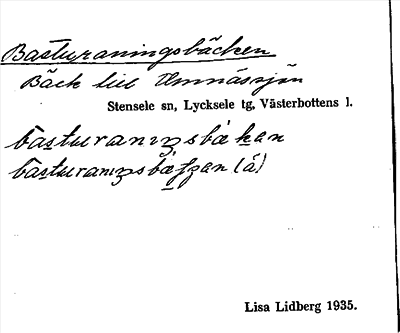 Basturaningsbäcken
Bäck till Umnässjön
Stensele sn, Lycksele tg, Västerbottens l.
basturaniŋsbäkan
(å)
Lisa Lidberg 1935.